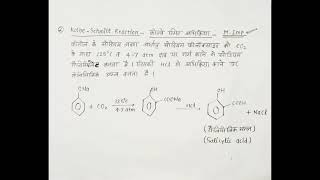 Kolbe-Schmidt Reaction - कोल्बे श्मिट अभिक्रिया - M.Imp
फीनॉल के सोडियम लवण अर्थात सोडियम फीनॉक्साइड को CO₂
के साथ 125°C व 4-7 atm दाब पर गर्म करने से सोडियम
सैलिसिलेट बनता है। जिसकी HCl से अभिक्रिया करने पर
सैलिसिलिक अम्ल बनता है।
ONa + CO₂ 125°C 4-7 atm OH COONa HCl OH COOH + NaCl
(सैलिसिलिक अम्ल)
(Salicylic acid)